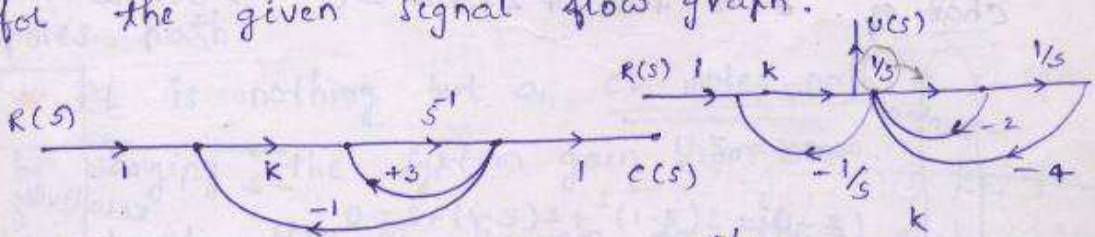 for the given signal flow graph.
U(S)
R(S) 1 k 1/s 1/s
-2
-1/s -4
k
R(S) 1 k s⁻¹ 1 C(S)
+3
-1